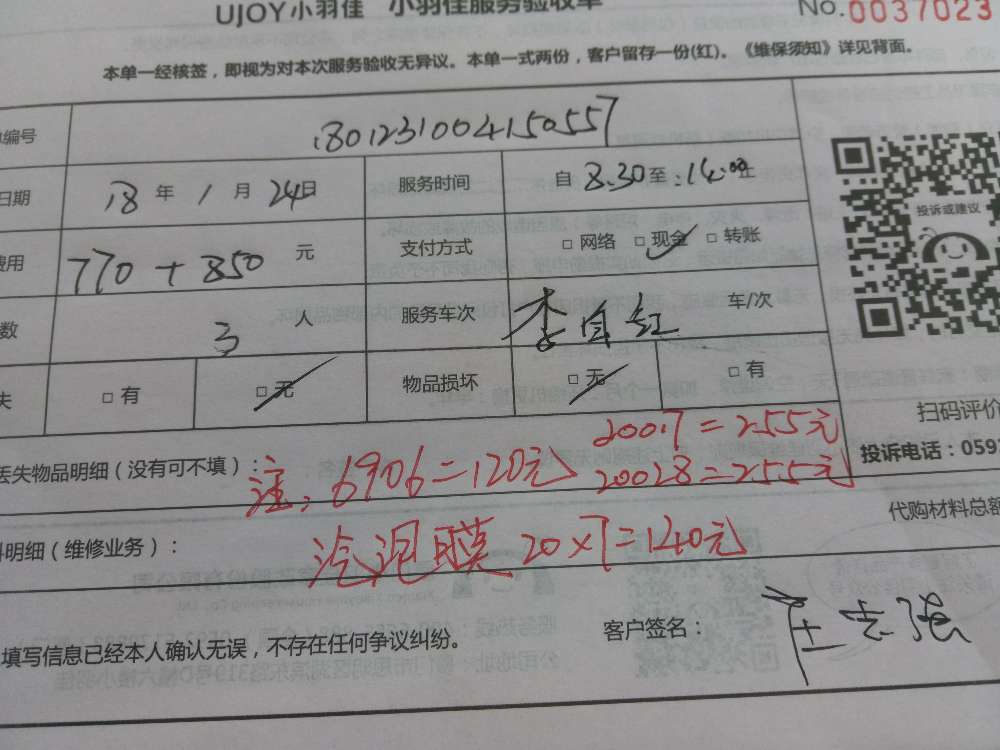 UJOY小羽佳 小羽佳服务验收单
No.0037023
本单一经核签，即视为对本次服务验收无异议。本单一式两份，客户留存一份(红)。《维保须知》详见背面。
编号 1801231004150557
日期 18 年 1 月 24 日 服务时间 自 8:30 至 14:00 止
费用 770 + 850 元 支付方式 □ 网络 □ 现金 □ 转账
数 3 人 服务车次 李自红 车/次
失 □ 有 □ 无 物品损坏 □ 无 □ 有
投诉或建议
扫码评价
投诉电话：059
丢失物品明细（没有可不填）： 注：6906=120元 20017=255元
20028=255元
代购材料总额
料明细（维修业务）： 汽泡膜 20×7=140元
填写信息已经本人确认无误，不存在任何争议纠纷。 客户签名： 庄志强